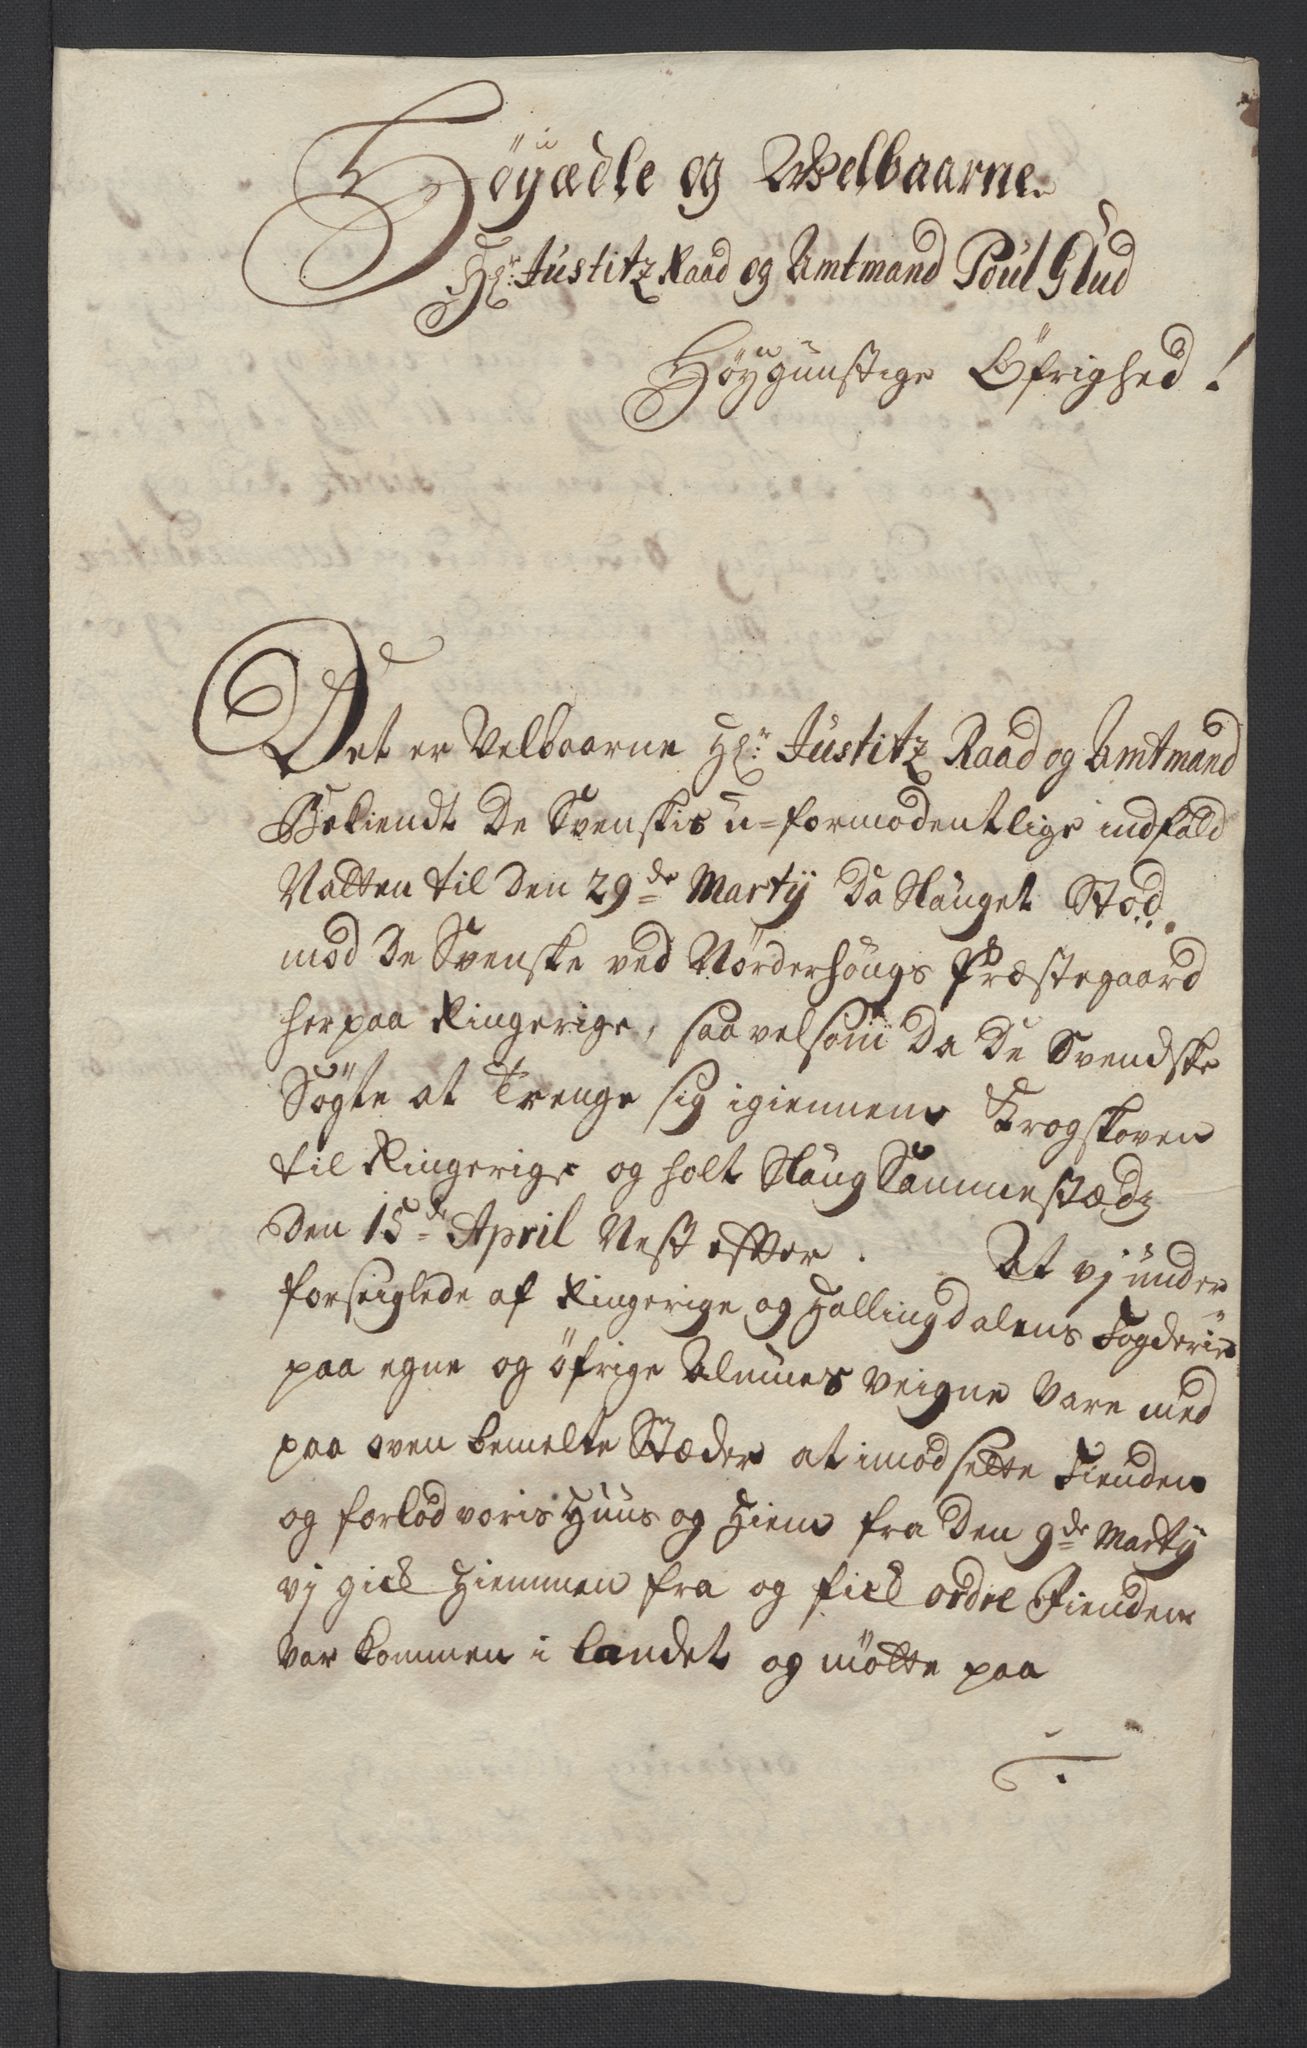 Höyædle og Welbaarne
Hr: Justitz Raad og Amtmand Poul Glud
Höygunstige Öfrighed!
Det er Velbaarne Hr: Justitz Raad og Amtmand
Bekiendt De Svenskis u=formodentlige indfald
Natten til den 29de Marty Da Slauget Stod
mod De Svenske ved Nörderhougs Præstegaard
her paa Ringerige, saavelsom Da De Svendske
Sögte at Trenge sig igiennem Krogskoven
til Ringerige og holt Slaug Sammestædz
Den 15de April Nest effter. At vj under
forseiglede af Ringerige og Hallingdalens Fogderie
paa egne og öfrige Almues veigne Vare med
paa oven bemelte Stæder at imod sette Fienden
og forlod voris Huus og Hiem fra Den 9de Marty
vj gick Hiemmen fra og fick ordre Fienden
var kommen i Landet og mötte paa